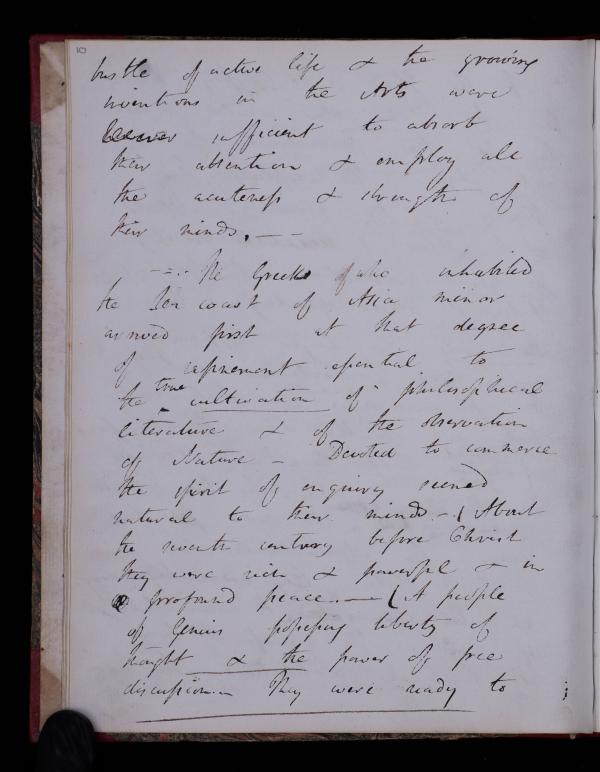 10
bustle of active life & the growing
inventions in the Arts were
sufficient to absorb
their attention & employ all
the acuteness & strength of
their minds. — —
The Greeks who inhabited
the Sea coast of Asia minor
arrived first at that degree
of refinement essential to
the true cultivation of philosophical
literature & of the observation
of Nature - Devoted to commerce
the spirit of enquiry seemed
natural to their minds. - ( About
the seventh century before Christ
they were rich & powerful & in
profound peace. — ( A people
of Genius possessing liberty of
thought & the power of free
discussion. - They were ready to